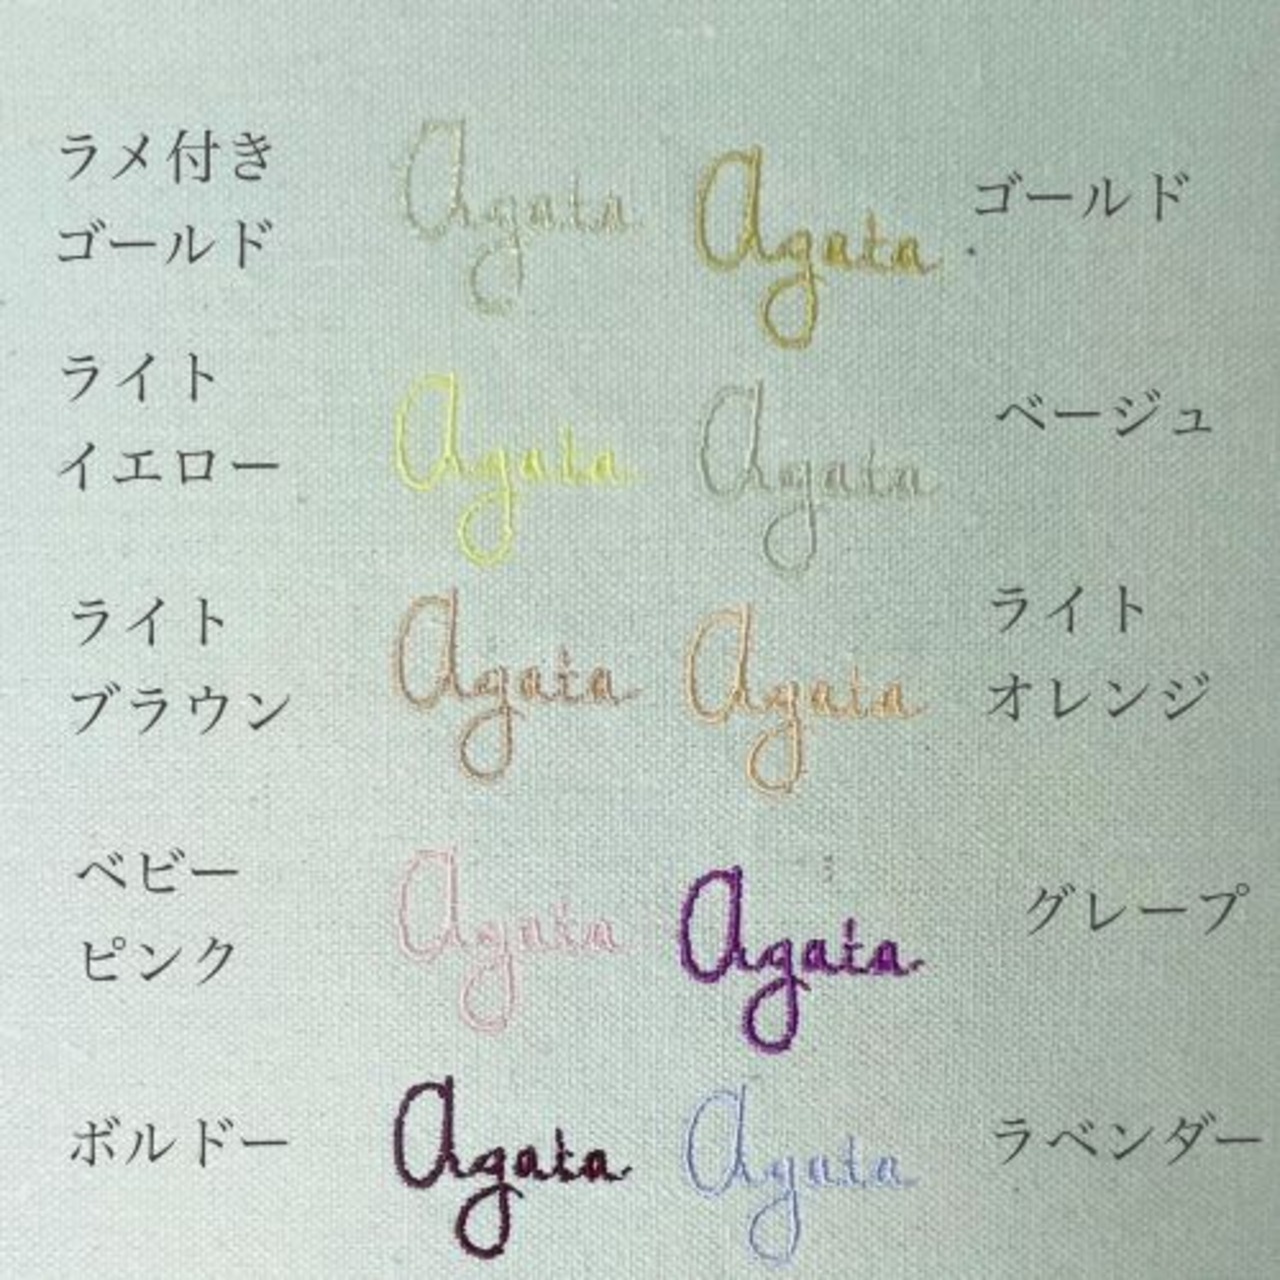 ラメ付き
ゴールド
Agata
Agata
ゴールド
ライト
イエロー
Agata
Agata
ベージュ
ライト
ブラウン
Agata
Agata
ライト
オレンジ
ベビー
ピンク
Agata
Agata
グレープ
ボルドー
Agata
Agata
ラベンダー